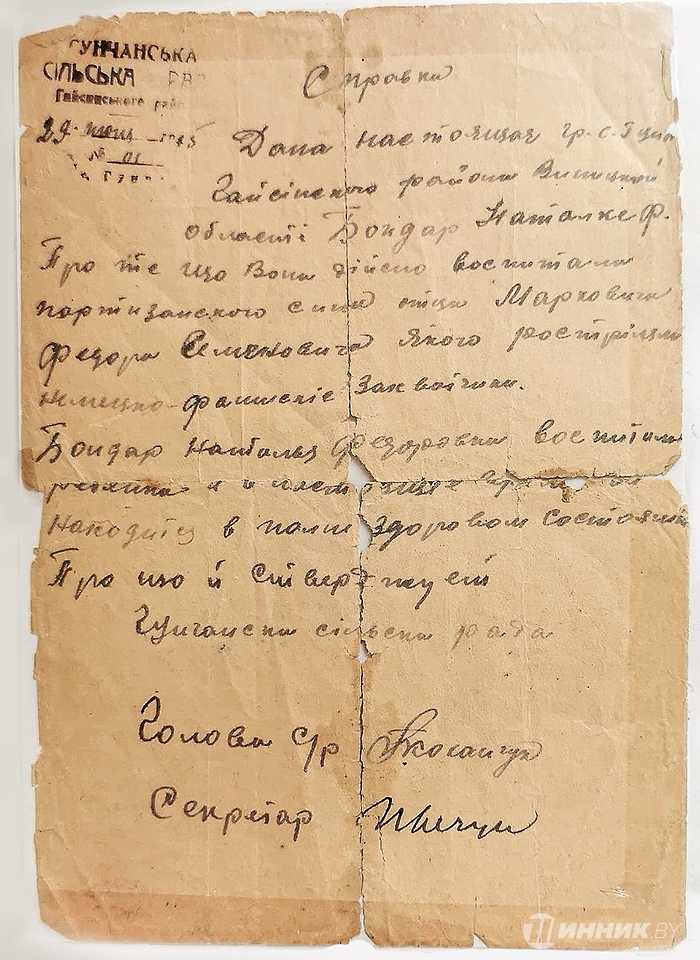 СУНЧАНСЬКА
СІЛЬСЬКА РА
Гайсинського райо
Справка
29 1945
№ 01
Дана настоящая гр. с. Гунч
Гайсінского района Виницкой
області Бондар Наталке Ф.
Про те що вона дійсно воспитала
партизанского сина Марковича
Федора Семеновича якого розстріляли
немецко-фашискіе захватчики.
Бондар Наталья Федоровна воспитала
ребенка и в
находится в полне здоровом состоянии
Про що й стверджуєт
Гунчанска сільска рада
Голова с/р
Секретар
ИННИК.BY